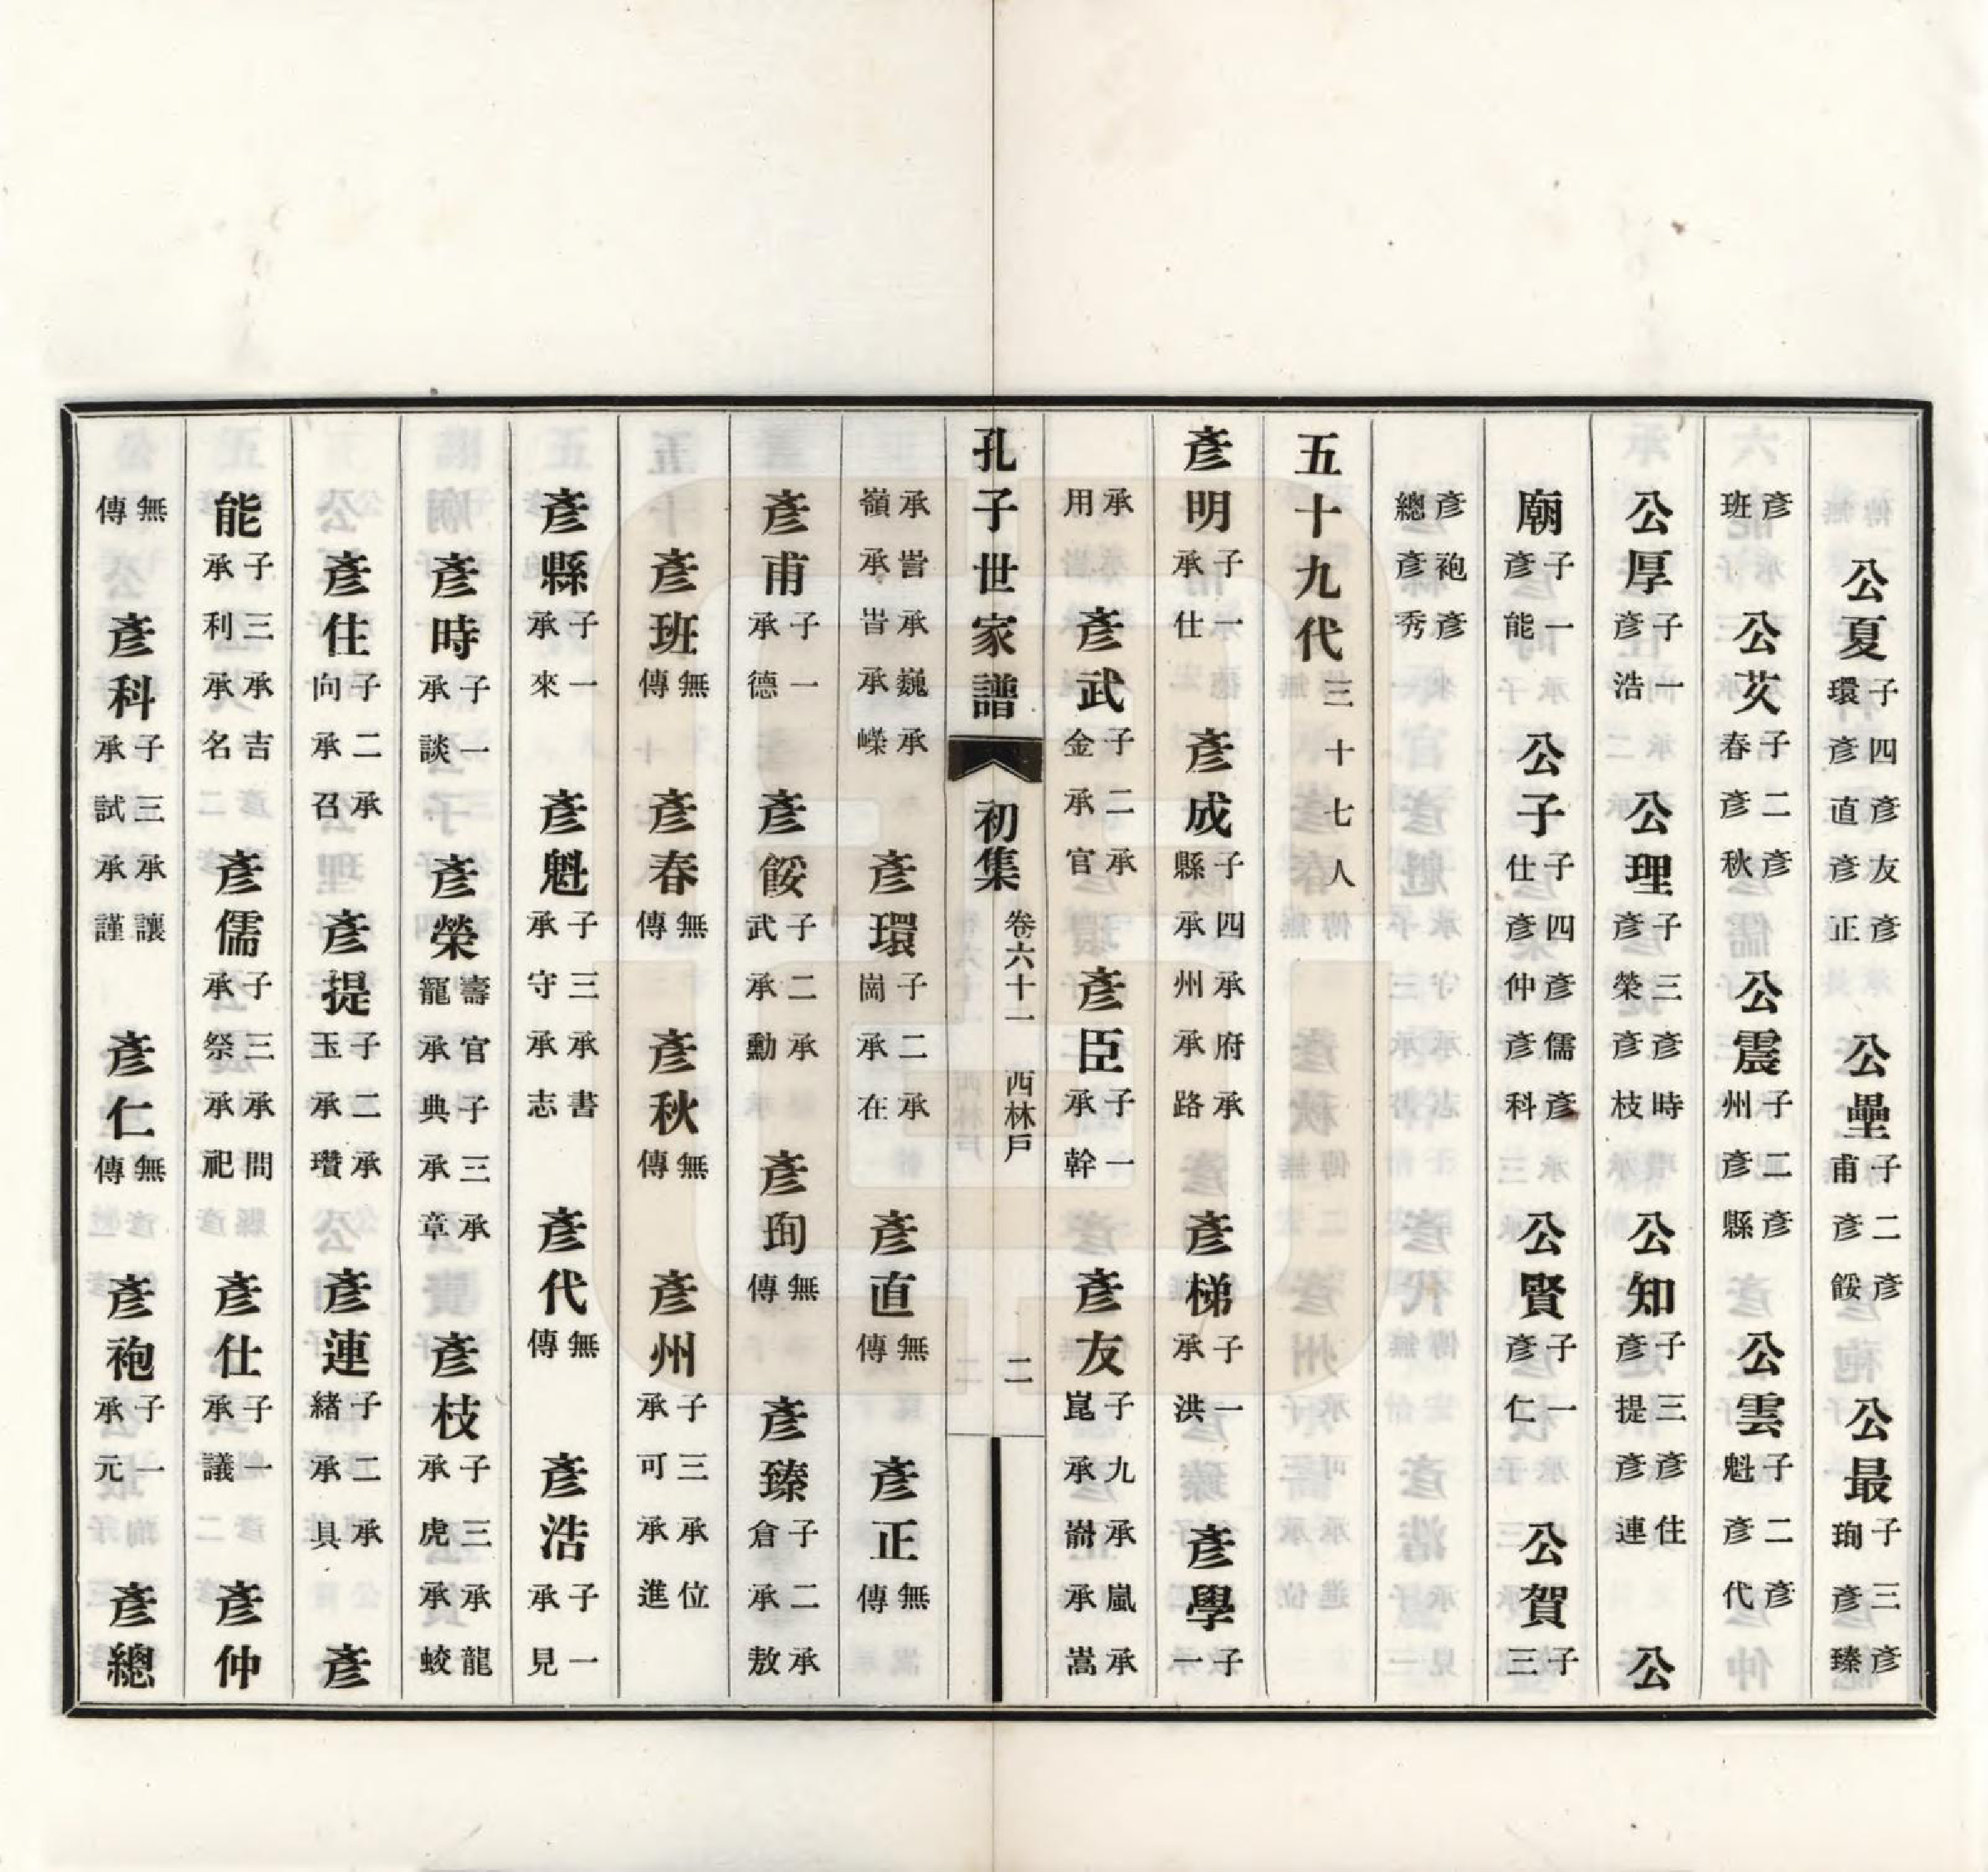 公夏子四彥友彥環彥直彥正公壘子二彥甫彥餒公最子三彥珣彥臻
彥班公艾子二彥春彥秋公震子二彥州彥縣公雲子二彥魁彥代
公厚子一彥浩公理子三彥時彥榮彥枝公知子三彥住彥提彥連公
廟子一彥能公子子四彥儒彥仕彥仲彥科公賢子一彥仁公賀子三
彥袍彥總彥秀
五十九代三十七人
彥明子一承仕彥成子四承府承縣承州承路彥梯子一承洪彥學子一
承用彥武子二承金承官彥臣子一承幹彥友子九承嵐承崑承承嵩
孔子世家譜 初集 卷六十一 西林戶 二
承承巍承嶺承承嶸彥環子二承崗承在彥直無傳彥正無傳
彥甫子一承德彥餒子二承武承勳彥珣無傳彥臻子二承倉承敖
彥班無傳彥春無傳彥秋無傳彥州子三承位承可承進
彥縣子一承來彥魁子三承書承守承志彥代無傳彥浩子一承見
彥時子一承談彥榮壽官子三承寵承典承章彥枝子三承龍承虎承蛟
彥住子二承向承召彥提子二承玉承瓚彥連子二承緒承具彥
能子三承吉承利承名彥儒子三承問承祭承祀彥仕子一承議彥仲
無傳彥科子三承讓承試承謹彥仁無傳彥袍子一承元彥總